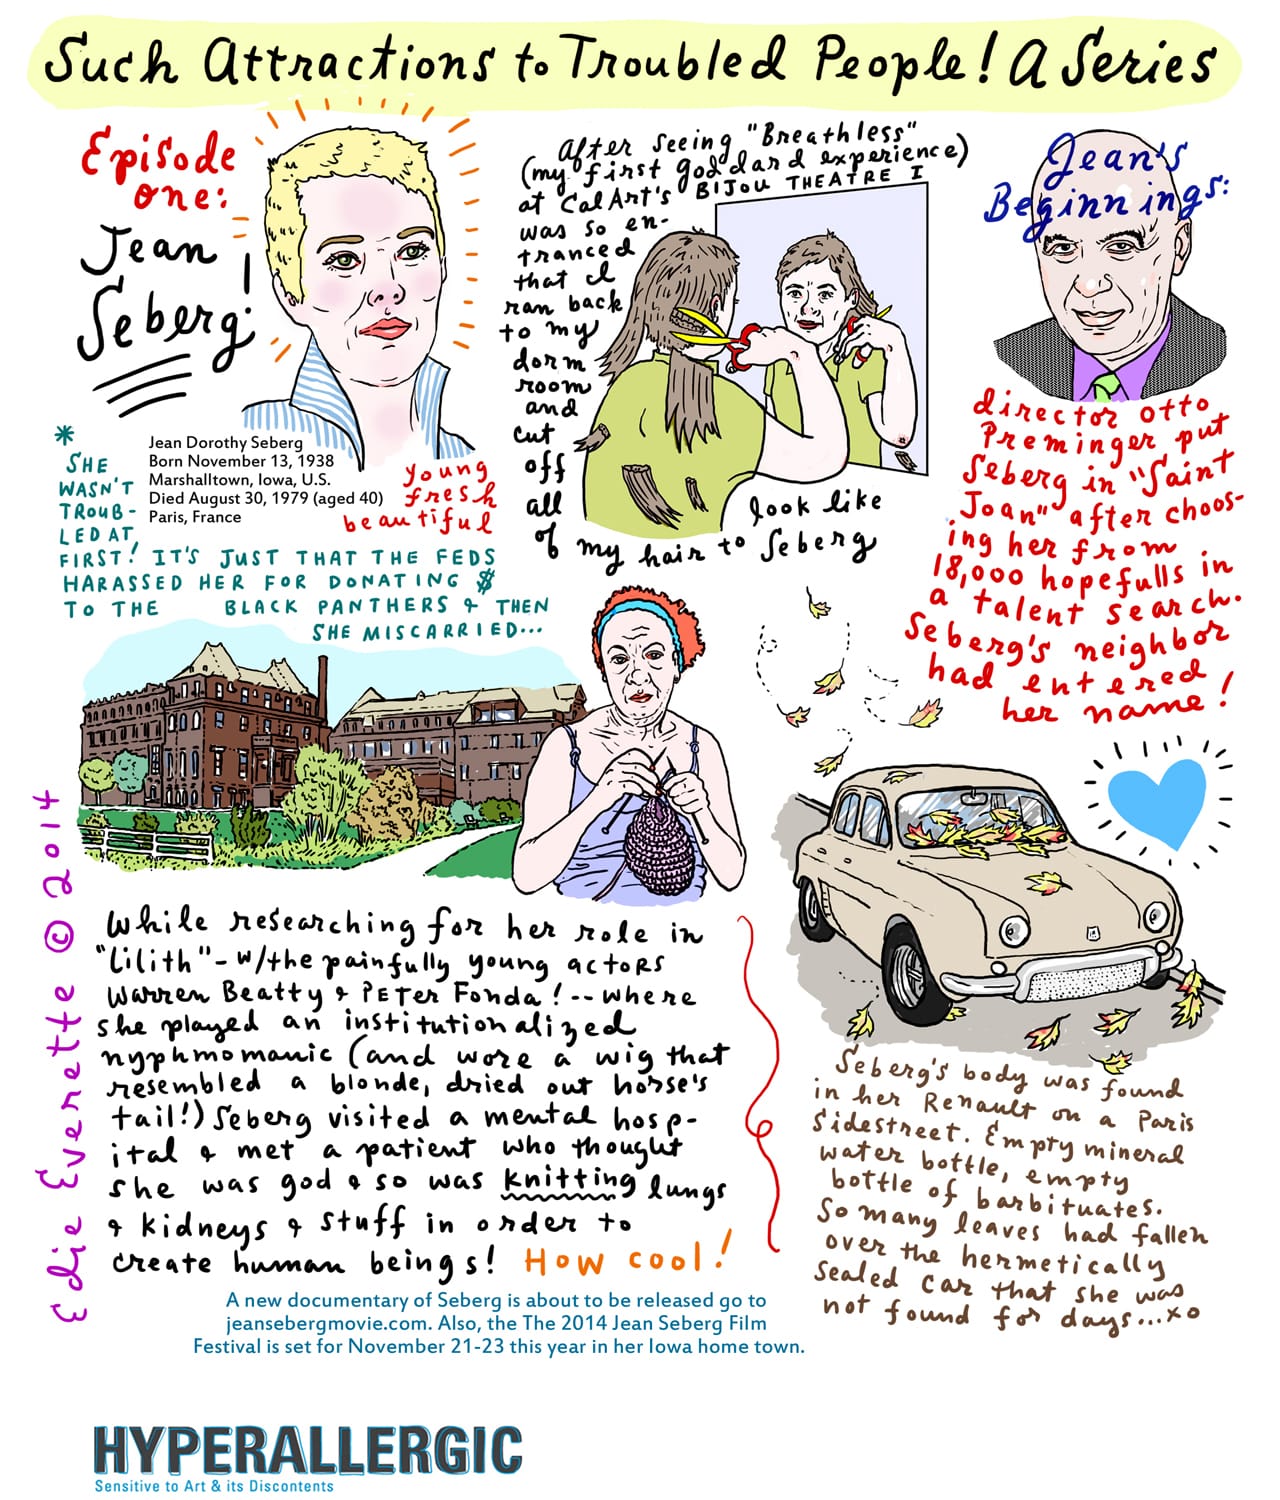 Such Attractions to Troubled People! A Series
Episode
one:
Jean
Seberg!
Jean Dorothy Seberg
Born November 13, 1938
Marshalltown, Iowa, U.S.
Died August 30, 1979 (aged 40)
Paris, France
young
fresh
beautiful
* SHE
WASN'T
TROUB-
LED AT
FIRST! IT'S JUST THAT THE FEDS
HARASSED HER FOR DONATING $
TO THE BLACK PANTHERS & THEN
SHE MISCARRIED...
After seeing "Breathless"
(my first goddard experience)
at CalArt's BIJOU THEATRE I
was so en-
tranced
that I
ran back
to my
dorm
room
and
cut
off
all
of my hair to look like
Seberg
Jean's
Beginnings:
director otto
Preminger put
Seberg in "Saint
Joan" after choos-
ing her from
18,000 hopefulls in
a talent search.
Seberg's neighbor
had entered
her name!
While researching for her role in
"Lilith"- w/the painfully young actors
Warren Beatty & PETer Fonda! -- where
she played an institutionalized
nyphmomanic (and wore a wig that
resembled a blonde, dried out horse's
tail!) Seberg visited a mental hosp-
ital & met a patient who thought
she was god & so was knitting lungs
& kidneys & stuff in order to
create human beings! How cool!
Seberg's body was found
in her Renault on a Paris
sidestreet. Empty mineral
water bottle, empty
bottle of barbituates.
So many leaves had fallen
over the hermetically
sealed car that she was
not found for days...xo
Edie Everette © 2014
A new documentary of Seberg is about to be released go to
jeansebergmovie.com. Also, the The 2014 Jean Seberg Film
Festival is set for November 21-23 this year in her Iowa home town.
HYPERALLERGIC
Sensitive to Art & its Discontents